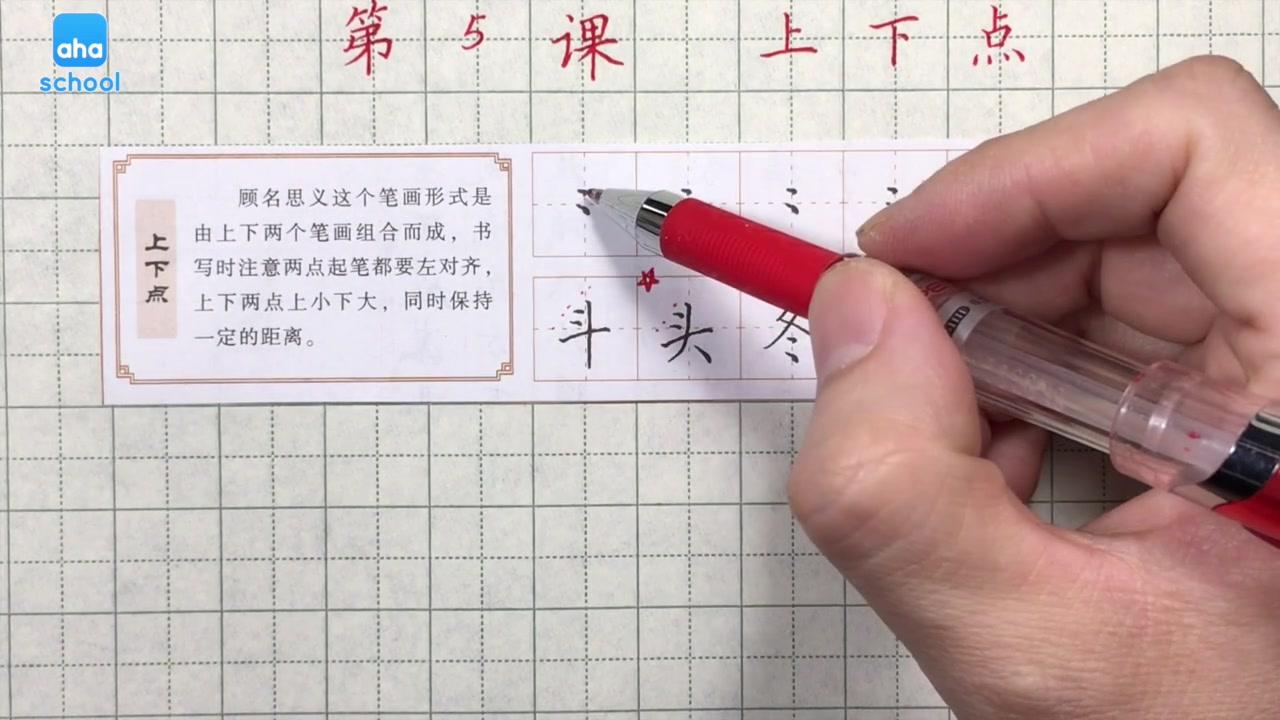 aha
school
第5课 上下点
上下点
顾名思义这个笔画形式是
由上下两个笔画组合而成，书
写时注意两点起笔都要左对齐，
上下两点上小下大，同时保持
一定的距离。
斗 头 冬